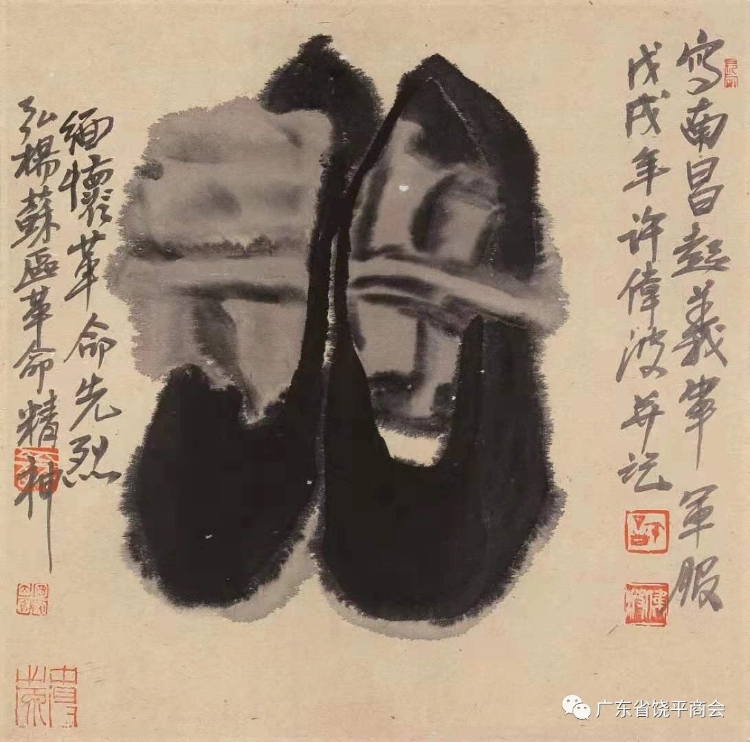 写南昌起義軍軍服
戊戌年许偉波并记
缅懷革命先烈
弘揚蘇區革命精神
广东省饶平商会